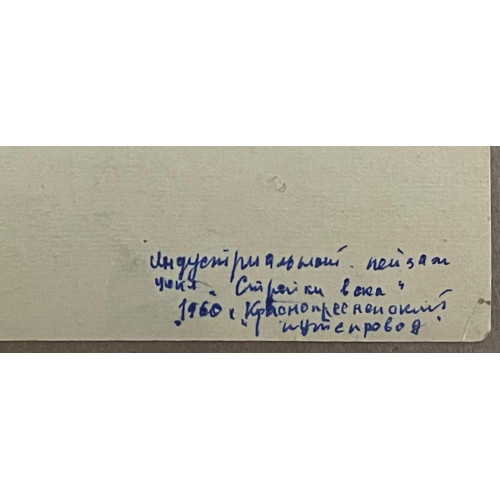 Индустриальный пейзаж
цикл „Стройки века"
1960 г „Краснопресненский
путепровод"